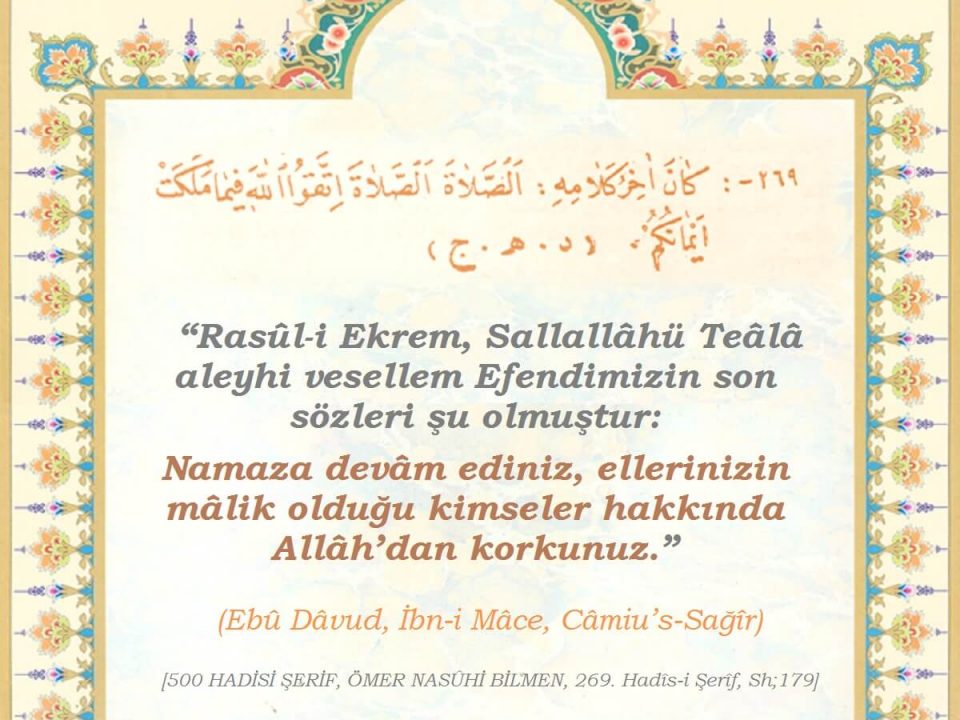 ٢٦٩-: كَانَ اٰخِرُ كَلَامِهِ: اَلصَّلَاةَ اَلصَّلَاةَ اِتَّقُوا اللّٰهَ فِيمَا مَلَكَتْ
اَيْمَانُكُمْ. (د. هـ. ج)
“Rasûl-i Ekrem, Sallallâhü Teâlâ
aleyhi vesellem Efendimizin son
sözleri şu olmuştur:
Namaza devâm ediniz, ellerinizin
mâlik olduğu kimseler hakkında
Allâh’dan korkunuz.”
(Ebû Dâvud, İbn-i Mâce, Câmiu’s-Sağîr)
[500 HADİSİ ŞERİF, ÖMER NASÛHİ BİLMEN, 269. Hadîs-i Şerîf, Sh;179]